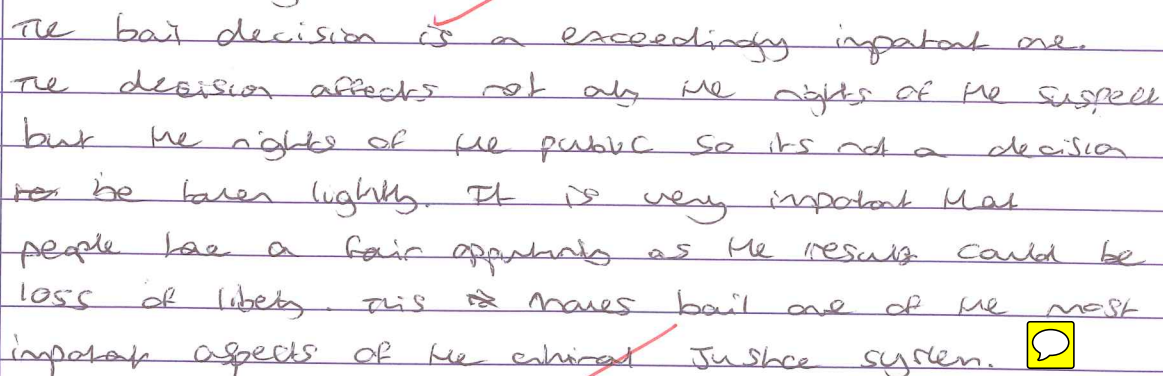 The bail decision is a exceedingly important one.
The decision affects not only the rights of the suspect
but the rights of the public so its not a decision
to be taken lightly. It is very important that
people have a fair opportunity as the results could be
loss of liberty. This makes bail one of the most
important aspects of the criminal Justice system.